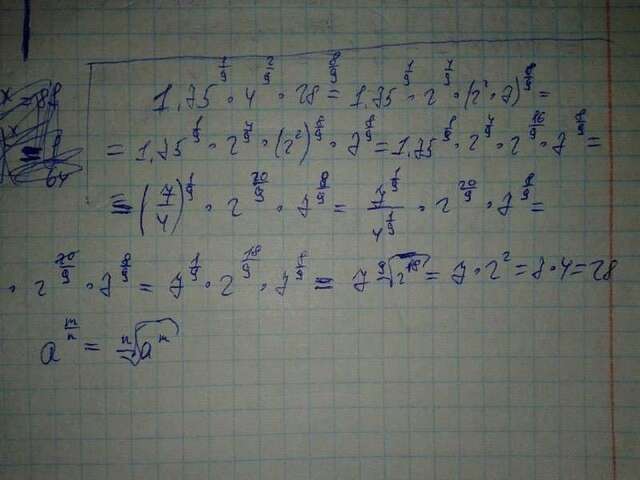 1,75^{1/9} · 4^{2/9} · 28^{8/9} = 1,75^{1/9} · 2^{4/9} · (2² · 7)^{8/9} =
= 1,75^{1/9} · 2^{4/9} · (2²)^{8/9} · 7^{8/9} = 1,75^{1/9} · 2^{4/9} · 2^{16/9} · 7^{8/9} =
= (7/4)^{1/9} · 2^{20/9} · 7^{8/9} = 7^{1/9}/4^{1/9} · 2^{20/9} · 7^{8/9} =
· 2^{20/9} · 7^{8/9} = 7^{1/9} · 2^{18/9} · 7^{8/9} = 7 ⁹√2^{18} = 7 · 2² = 7 · 4 = 28
a^{m/n} = ⁿ√a^{m}